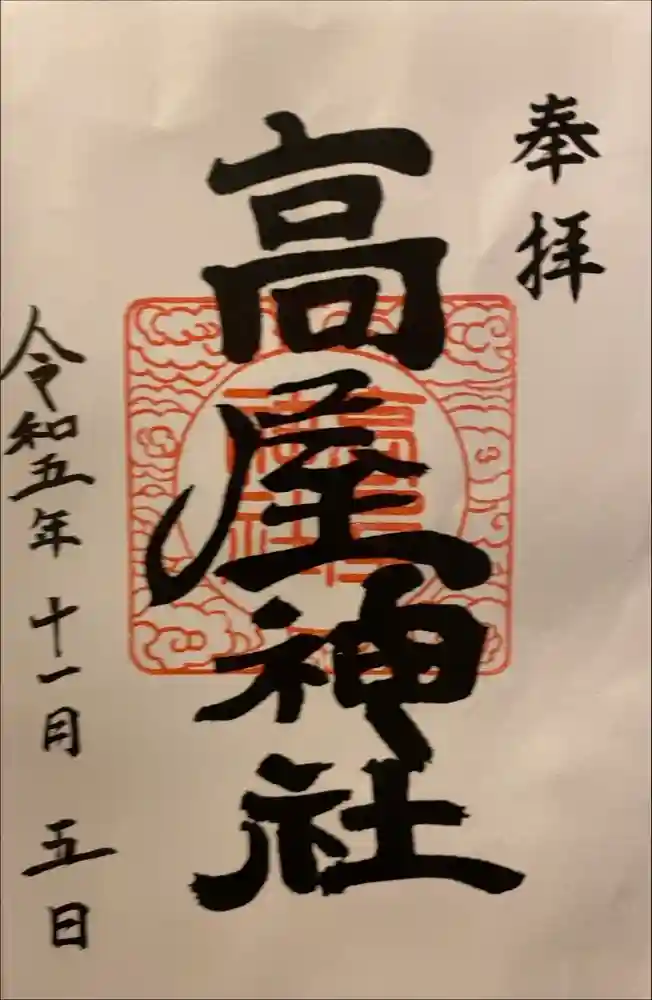 奉拝
高屋神社
高屋
神社
令和五年十一月五日